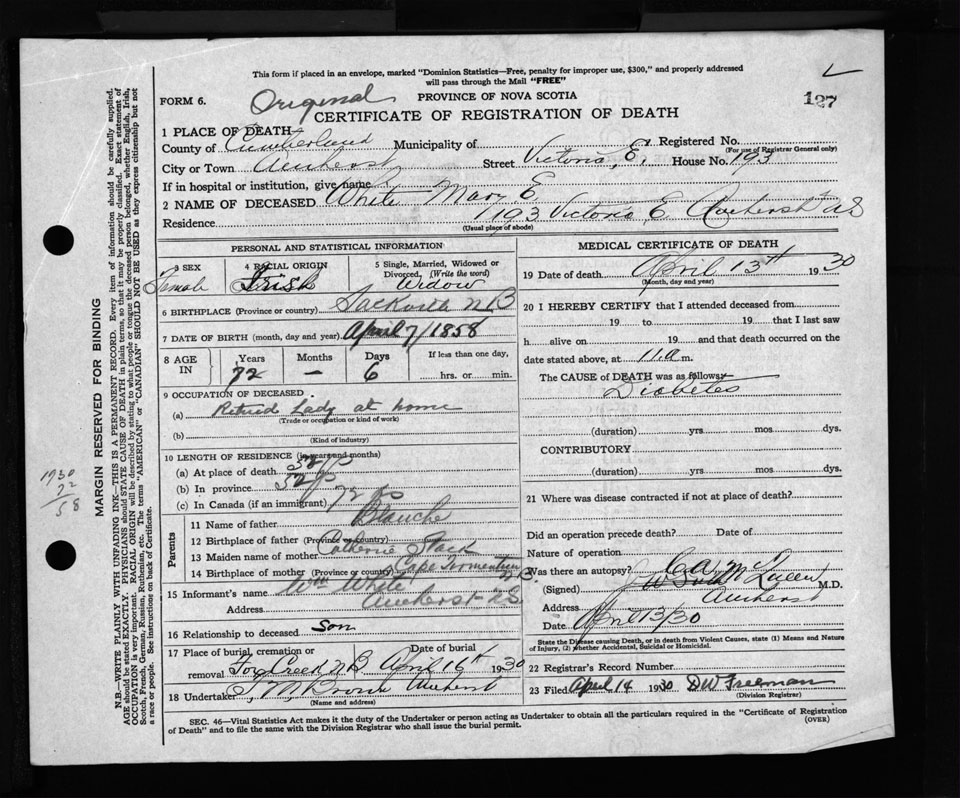 This form if placed in an envelope, marked "Dominion Statistics—Free, penalty for improper use, $300," and properly addressed
will pass through the Mail "FREE"
FORM 6. Original PROVINCE OF NOVA SCOTIA 127
CERTIFICATE OF REGISTRATION OF DEATH
1 PLACE OF DEATH
County of Cumberland Municipality of Registered No.
(For use of Registrar General only)
City or Town Amherst Street Victoria E. House No. 193
If in hospital or institution, give name
2 NAME OF DECEASED White Mary E
Residence 193 Victoria E Amherst NS
(Usual place of abode)
PERSONAL AND STATISTICAL INFORMATION
3 SEX 4 RACIAL ORIGIN 5 Single, Married, Widowed or
Divorced. (Write the word)
Female Irish Widow
6 BIRTHPLACE (Province or country) Sackville NB
7 DATE OF BIRTH (month, day and year) April 7/1858
8 AGE IN Years Months Days If less than one day,
72 — 6 hrs. or min.
9 OCCUPATION OF DECEASED
(a) Retired Lady at home
(Trade or occupation or kind of work)
(b)
(Kind of industry)
10 LENGTH OF RESIDENCE (in years and months)
(a) At place of death
(b) In province
(c) In Canada (if an immigrant) 72
Parents
11 Name of father Blanche
12 Birthplace of father (Province or country)
13 Maiden name of mother Catherine
14 Birthplace of mother (Province or country) Cape Tormentine NB
15 Informant's name Wm White
Address Amherst NS
16 Relationship to deceased son
17 Place of burial, cremation or removal Date of burial
NB April 16th 1930
18 Undertaker Amherst
(Name and address)
MEDICAL CERTIFICATE OF DEATH
19 Date of death April 13th 1930
(Month, day and year)
20 I HEREBY CERTIFY that I attended deceased from
19 to 19 that I last saw
h alive on 19 and that death occurred on the
date stated above, at 11.a m.
The CAUSE of DEATH was as follows:
Diabetes
(duration) yrs mos dys.
CONTRIBUTORY
(duration) yrs mos dys.
21 Where was disease contracted if not at place of death?
Did an operation precede death? Date of
Nature of operation
Was there an autopsy?
(Signed) M.D.
Address Amherst
Date April 13/30
State the Disease causing Death, or in death from Violent Causes, state (1) Means and Nature
of Injury, (2) whether Accidental, Suicidal or Homicidal.
22 Registrar's Record Number
23 Filed April 14 1930 DW Freeman
(Division Registrar)
SEC. 46—Vital Statistics Act makes it the duty of the Undertaker or person acting as Undertaker to obtain all the particulars required in the "Certificate of Registration
of Death" and to file the same with the Division Registrar who shall issue the burial permit. (OVER)
MARGIN RESERVED FOR BINDING
N.B.—WRITE PLAINLY WITH UNFADING INK—THIS IS A PERMANENT RECORD. Every item of information should be carefully supplied.
AGE should be stated EXACTLY. PHYSICIANS should STATE CAUSE OF DEATH in plain terms, so that it may be properly classified. Exact statement of
OCCUPATION is very important. RACIAL ORIGIN will be described by stating to what people or tongue the deceased person belonged, whether English, Irish,
Scotch, French, German, Russian, Ruthenian, etc. The terms "AMERICAN" or "CANADIAN" SHOULD NOT BE USED as they express citizenship but not
a race or people. See instructions on back of Certificate.
1930
72
58